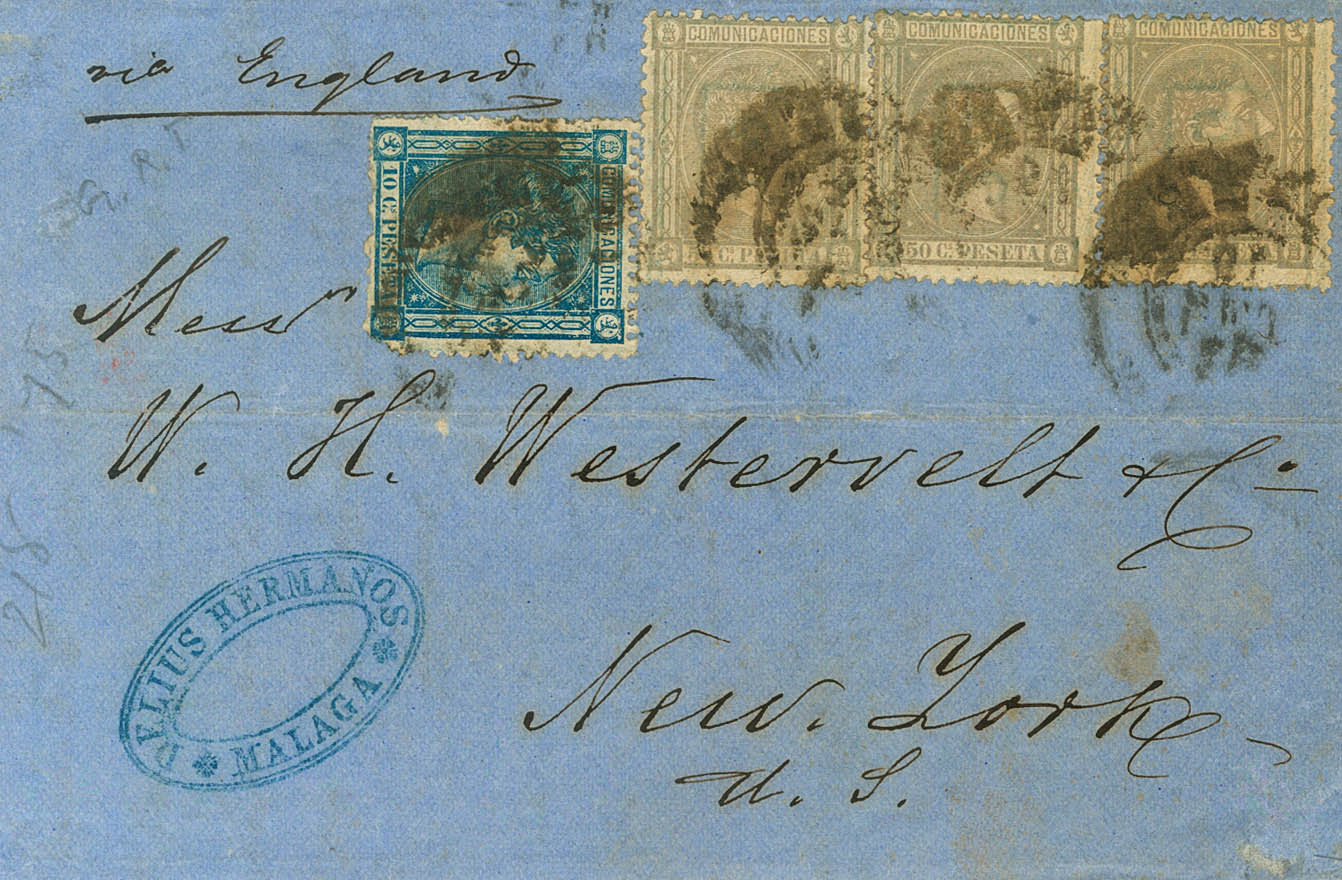 via England
COMUNICACIONES
COMUNICACIONES
COMUNICACIONES
50 C. PESETA
COMUNICACIONES
10 C. PESETA
Mess rs
W. H. Westervelt & Co
New. York
U. S.
DELIUS HERMANOS
MALAGA